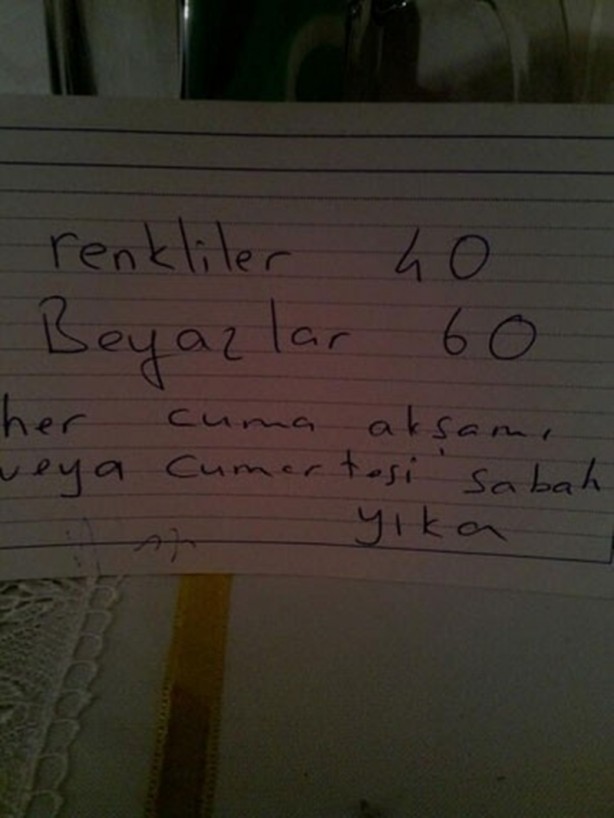 renkliler 40
Beyazlar 60
her cuma akşamı
veya cumartesi sabah
yıka